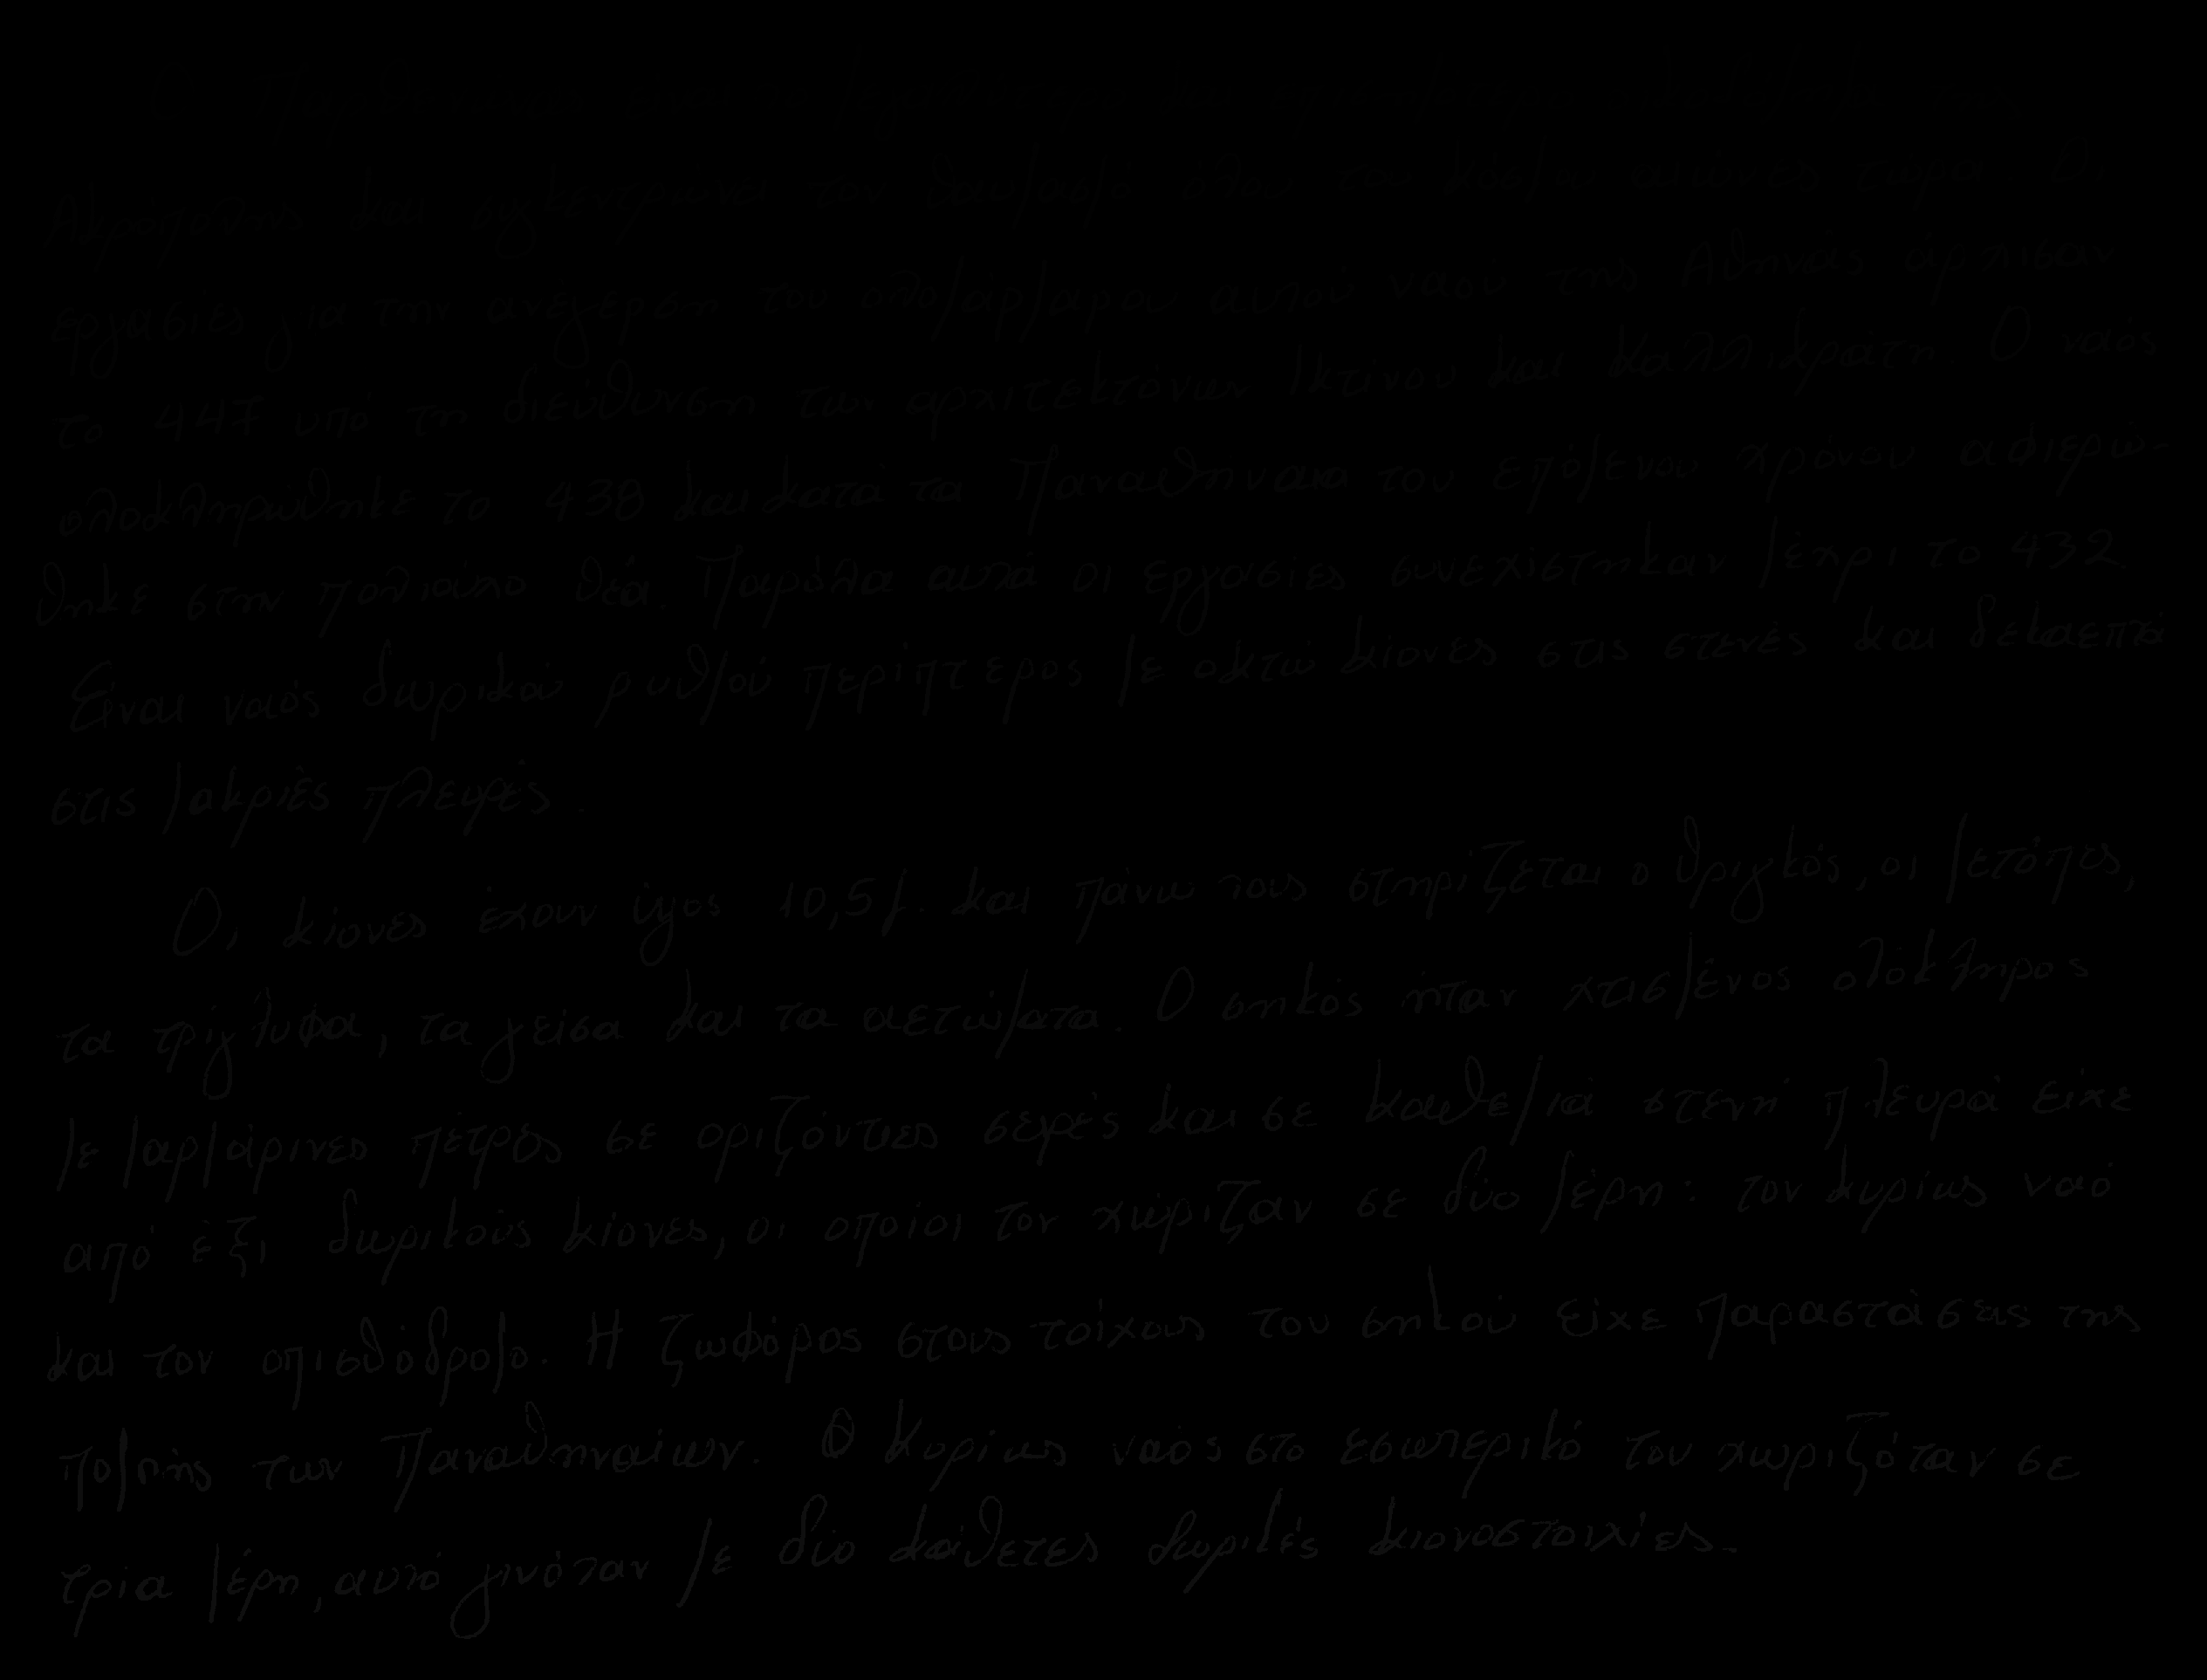 Ακρόπολης και συγκεντρώνει τον θαυμασμό όλου του κόσμου αιώνες τώρα. Οι
εργασίες για την ανέγερση του ολομάρμαρου αυτού ναού της Αθηνάς άρχισαν
το 447 υπό τη διεύθυνση των αρχιτεκτόνων Ικτίνου και Καλλικράτη. Ο ναός
ολοκληρώθηκε το 438 και κατά τα Παναθήναια του επόμενου χρόνου αφιερώ-
θηκε στην πολιούχο θεά. Παρόλα αυτά οι εργασίες συνεχίστηκαν μέχρι το 432.
Είναι ναός δωρικού ρυθμού περίπτερος με οκτώ κίονες στις στενές και δεκαεπτά
στις μακριές πλευρές.
Οι κίονες έχουν ύψος 10,5μ. και πάνω τους στηρίζεται ο θριγκός, οι μετόπες,
τα τρίγλυφα, τα γείσα και τα αετώματα. Ο σηκός ήταν χτισμένος ολόκληρος
με μαρμάρινες πέτρες σε οριζόντιες σειρές και σε καθεμιά στενή πλευρά είχε
από έξι δωρικούς κίονες, οι οποίοι τον χώριζαν σε δύο μέρη: τον κυρίως ναό
και τον οπισθόδρομο. Η ζωφόρος στους τοίχους του σηκού είχε παραστάσεις της
πομπής των Παναθηναίων. Ο κυρίως ναός στο εσωτερικό του χωριζόταν σε
τρία μέρη, αυτό γινόταν με δύο κάθετες δωρικές κιονοστοιχίες.